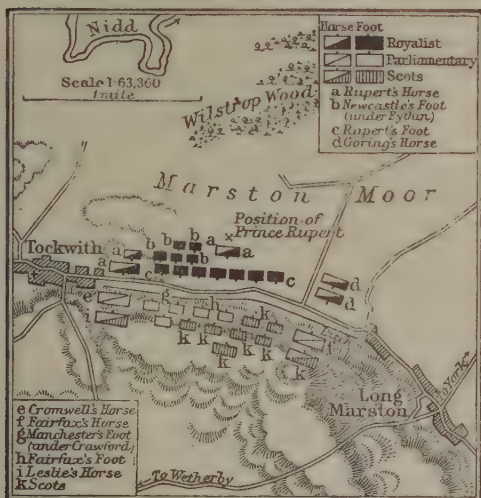 Nidd
Scale 1:63,360
1 mile
Horse Foot
Royalist
Parliamentary
Scots
a Rupert's Horse
b Newcastle's Foot
(under Eythin)
c Rupert's Foot
d Goring's Horse
Wilstrop Wood
Marston Moor
Position of
Prince Rupert
Tockwith
a
b b a
a
b b b
a
c
c
d
d
e
g
h
k
i
k
k
k
k
k
k
f
k
Long
Marston
to York
To Wetherby
e Cromwell's Horse
f Fairfax's Horse
g Manchester's Foot
(under Crawford)
h Fairfax's Foot
i Leslie's Horse
k Scots